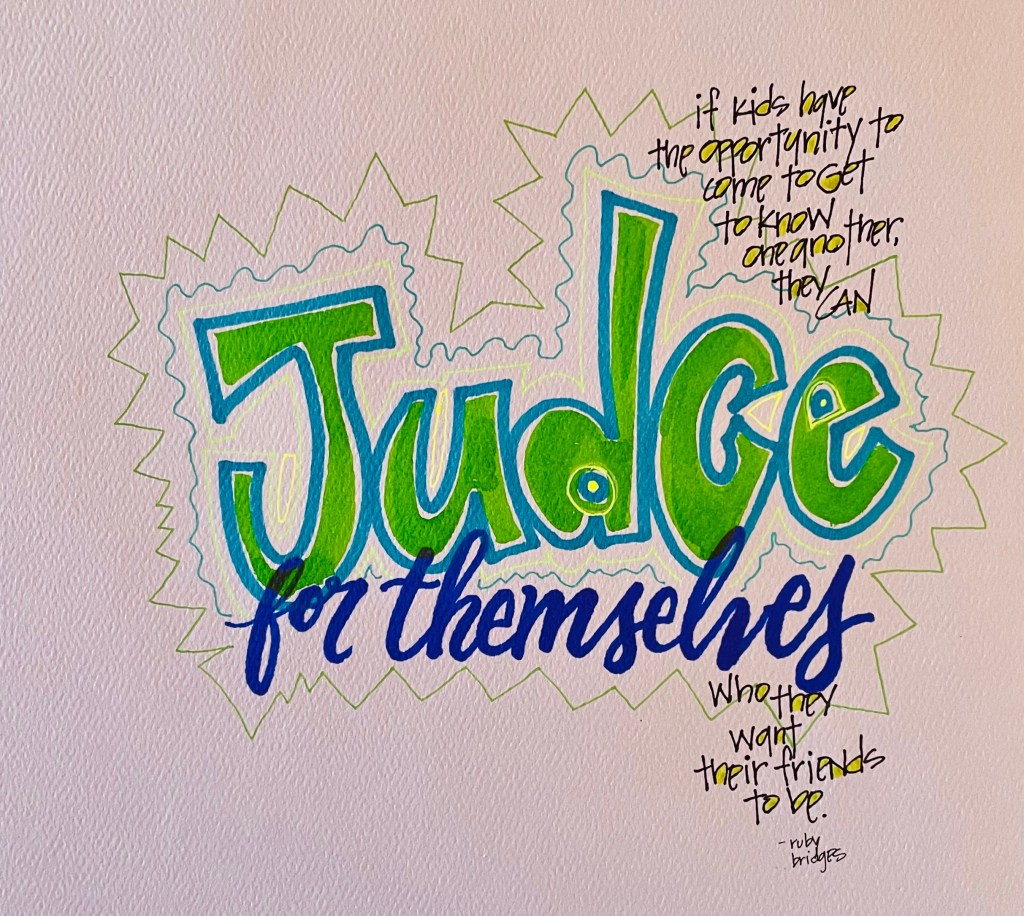 if kids have
the opportunity to
come to get
to know
one another,
they CAN
Judge
for themselves
who they
want
their friends
to be.
- ruby
bridges